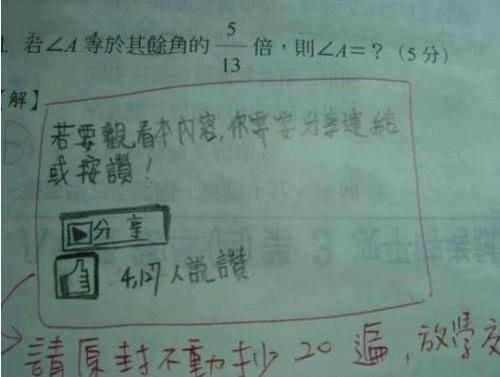 1. 若∠A 等於其餘角的 5/13 倍，則∠A=？（5分）
【解】
若要觀看本內容,你需要分享連結
或按讚！
分享
4,127人說讚
請原封不動抄20遍,放學交